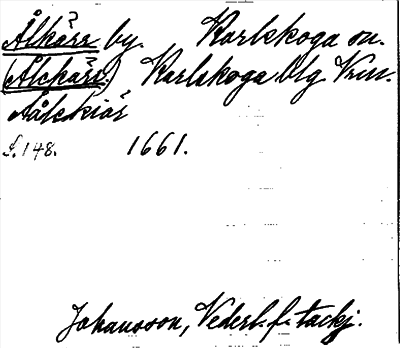 Ålkärr by. Karlskoga sn.
(Älckärr) Karlskoga blg Vrml.
Aålckiär
s. 148. 1661.
Johansson, Vederl. f. tackj.